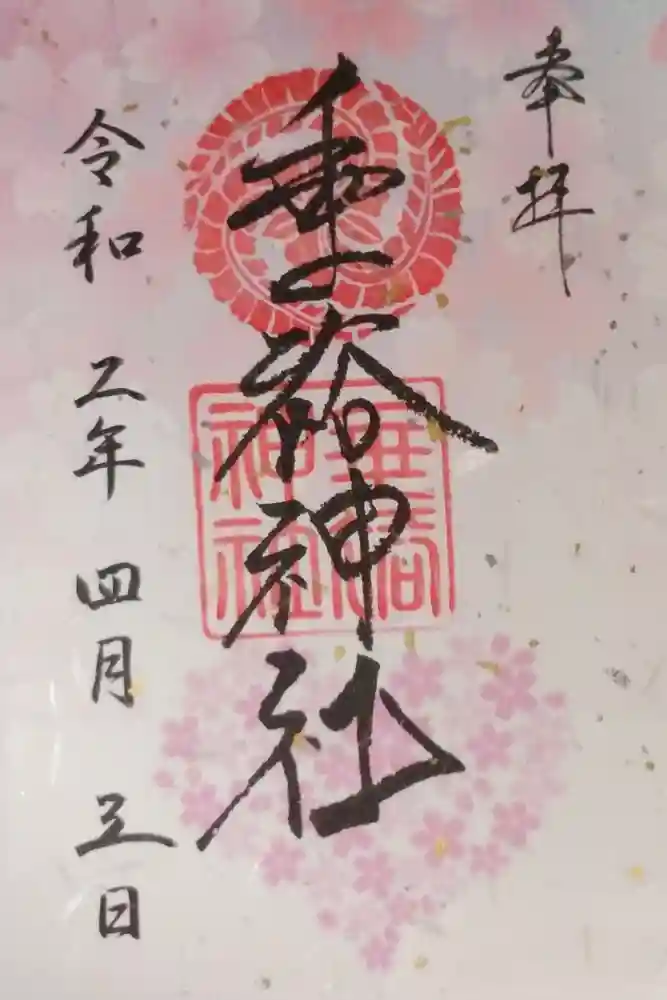 奉拝
垂裕神社
垂裕
神社
令和 二年 四月 五日